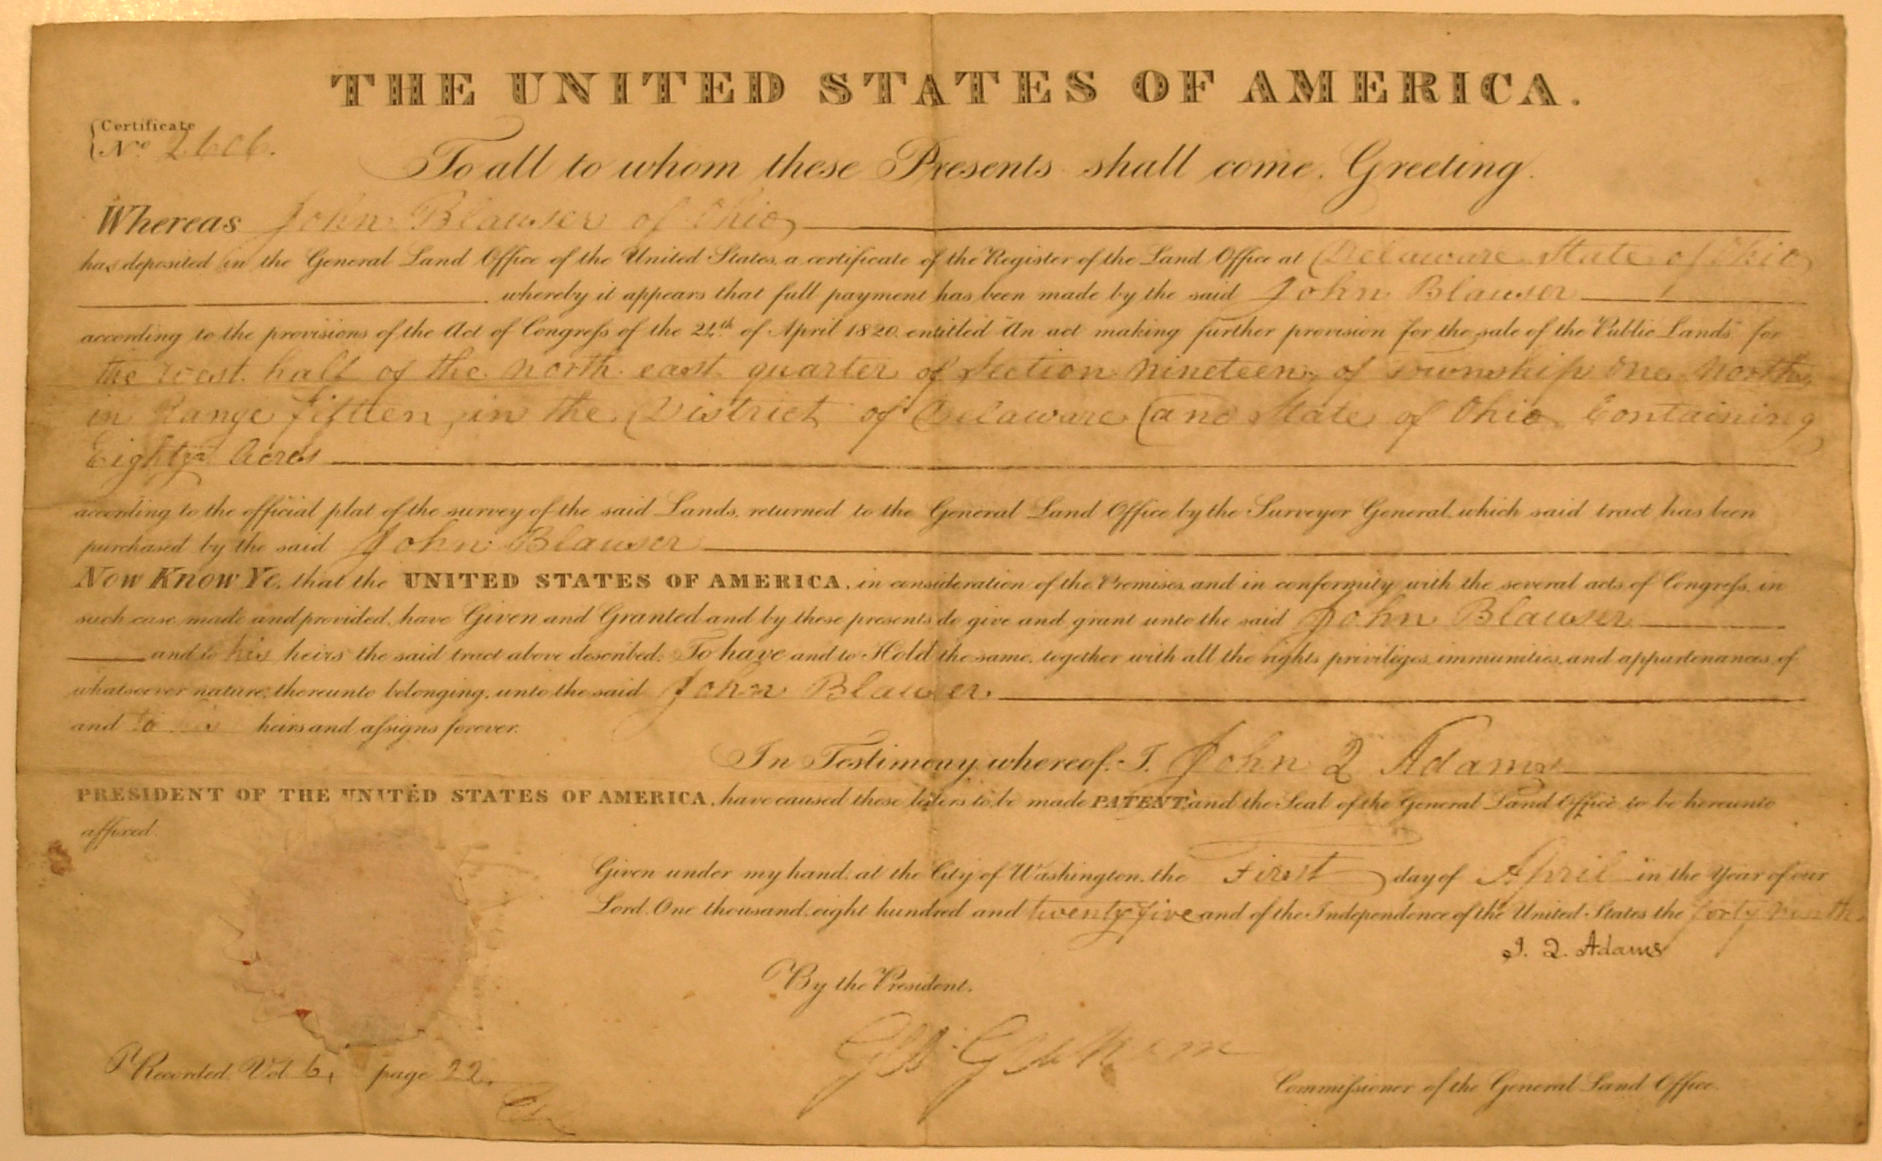 THE UNITED STATES OF AMERICA.
Certificate
No. 2606.
To all to whom these Presents shall come, Greeting.
Whereas John Blauser of Ohio
has deposited in the General Land Office of the United States, a certificate of the Register of the Land Office at Delaware State of Ohio
whereby it appears that full payment has been made by the said John Blauser
according to the provisions of the Act of Congress of the 24th of April 1820, entitled "An act making further provision for the sale of the Public Lands" for
the west half of the north east quarter of Section nineteen, of Township one North,
in Range fifteen, in the District of Delaware (and State of Ohio Containing
Eighty Acres
according to the official plat of the survey of the said Lands, returned to the General Land Office by the Surveyor General, which said tract has been
purchased by the said John Blauser
Now Know Ye, that the UNITED STATES OF AMERICA, in consideration of the Premises, and in conformity with the several acts of Congress, in
such case made and provided, have Given and Granted and by these presents do give and grant unto the said John Blauser
and to his heirs the said tract above described: To have and to Hold the same, together with all the rights privileges, immunities, and appurtenances of
whatsoever nature, thereunto belonging, unto the said John Blauser,
and to his heirs and assigns forever.
In Testimony whereof, I, John Q Adams
PRESIDENT OF THE UNITED STATES OF AMERICA, have caused these letters to be made PATENT, and the Seal of the General Land Office to be hereunto
affixed.
Given under my hand, at the City of Washington, the First day of April in the Year of our
Lord, One thousand, eight hundred and twenty five and of the Independence of the United States the forty ninth
J. Q. Adams
By the President,
Geo. Graham
Commissioner of the General Land Office.
Recorded, Vol 6, page 22.